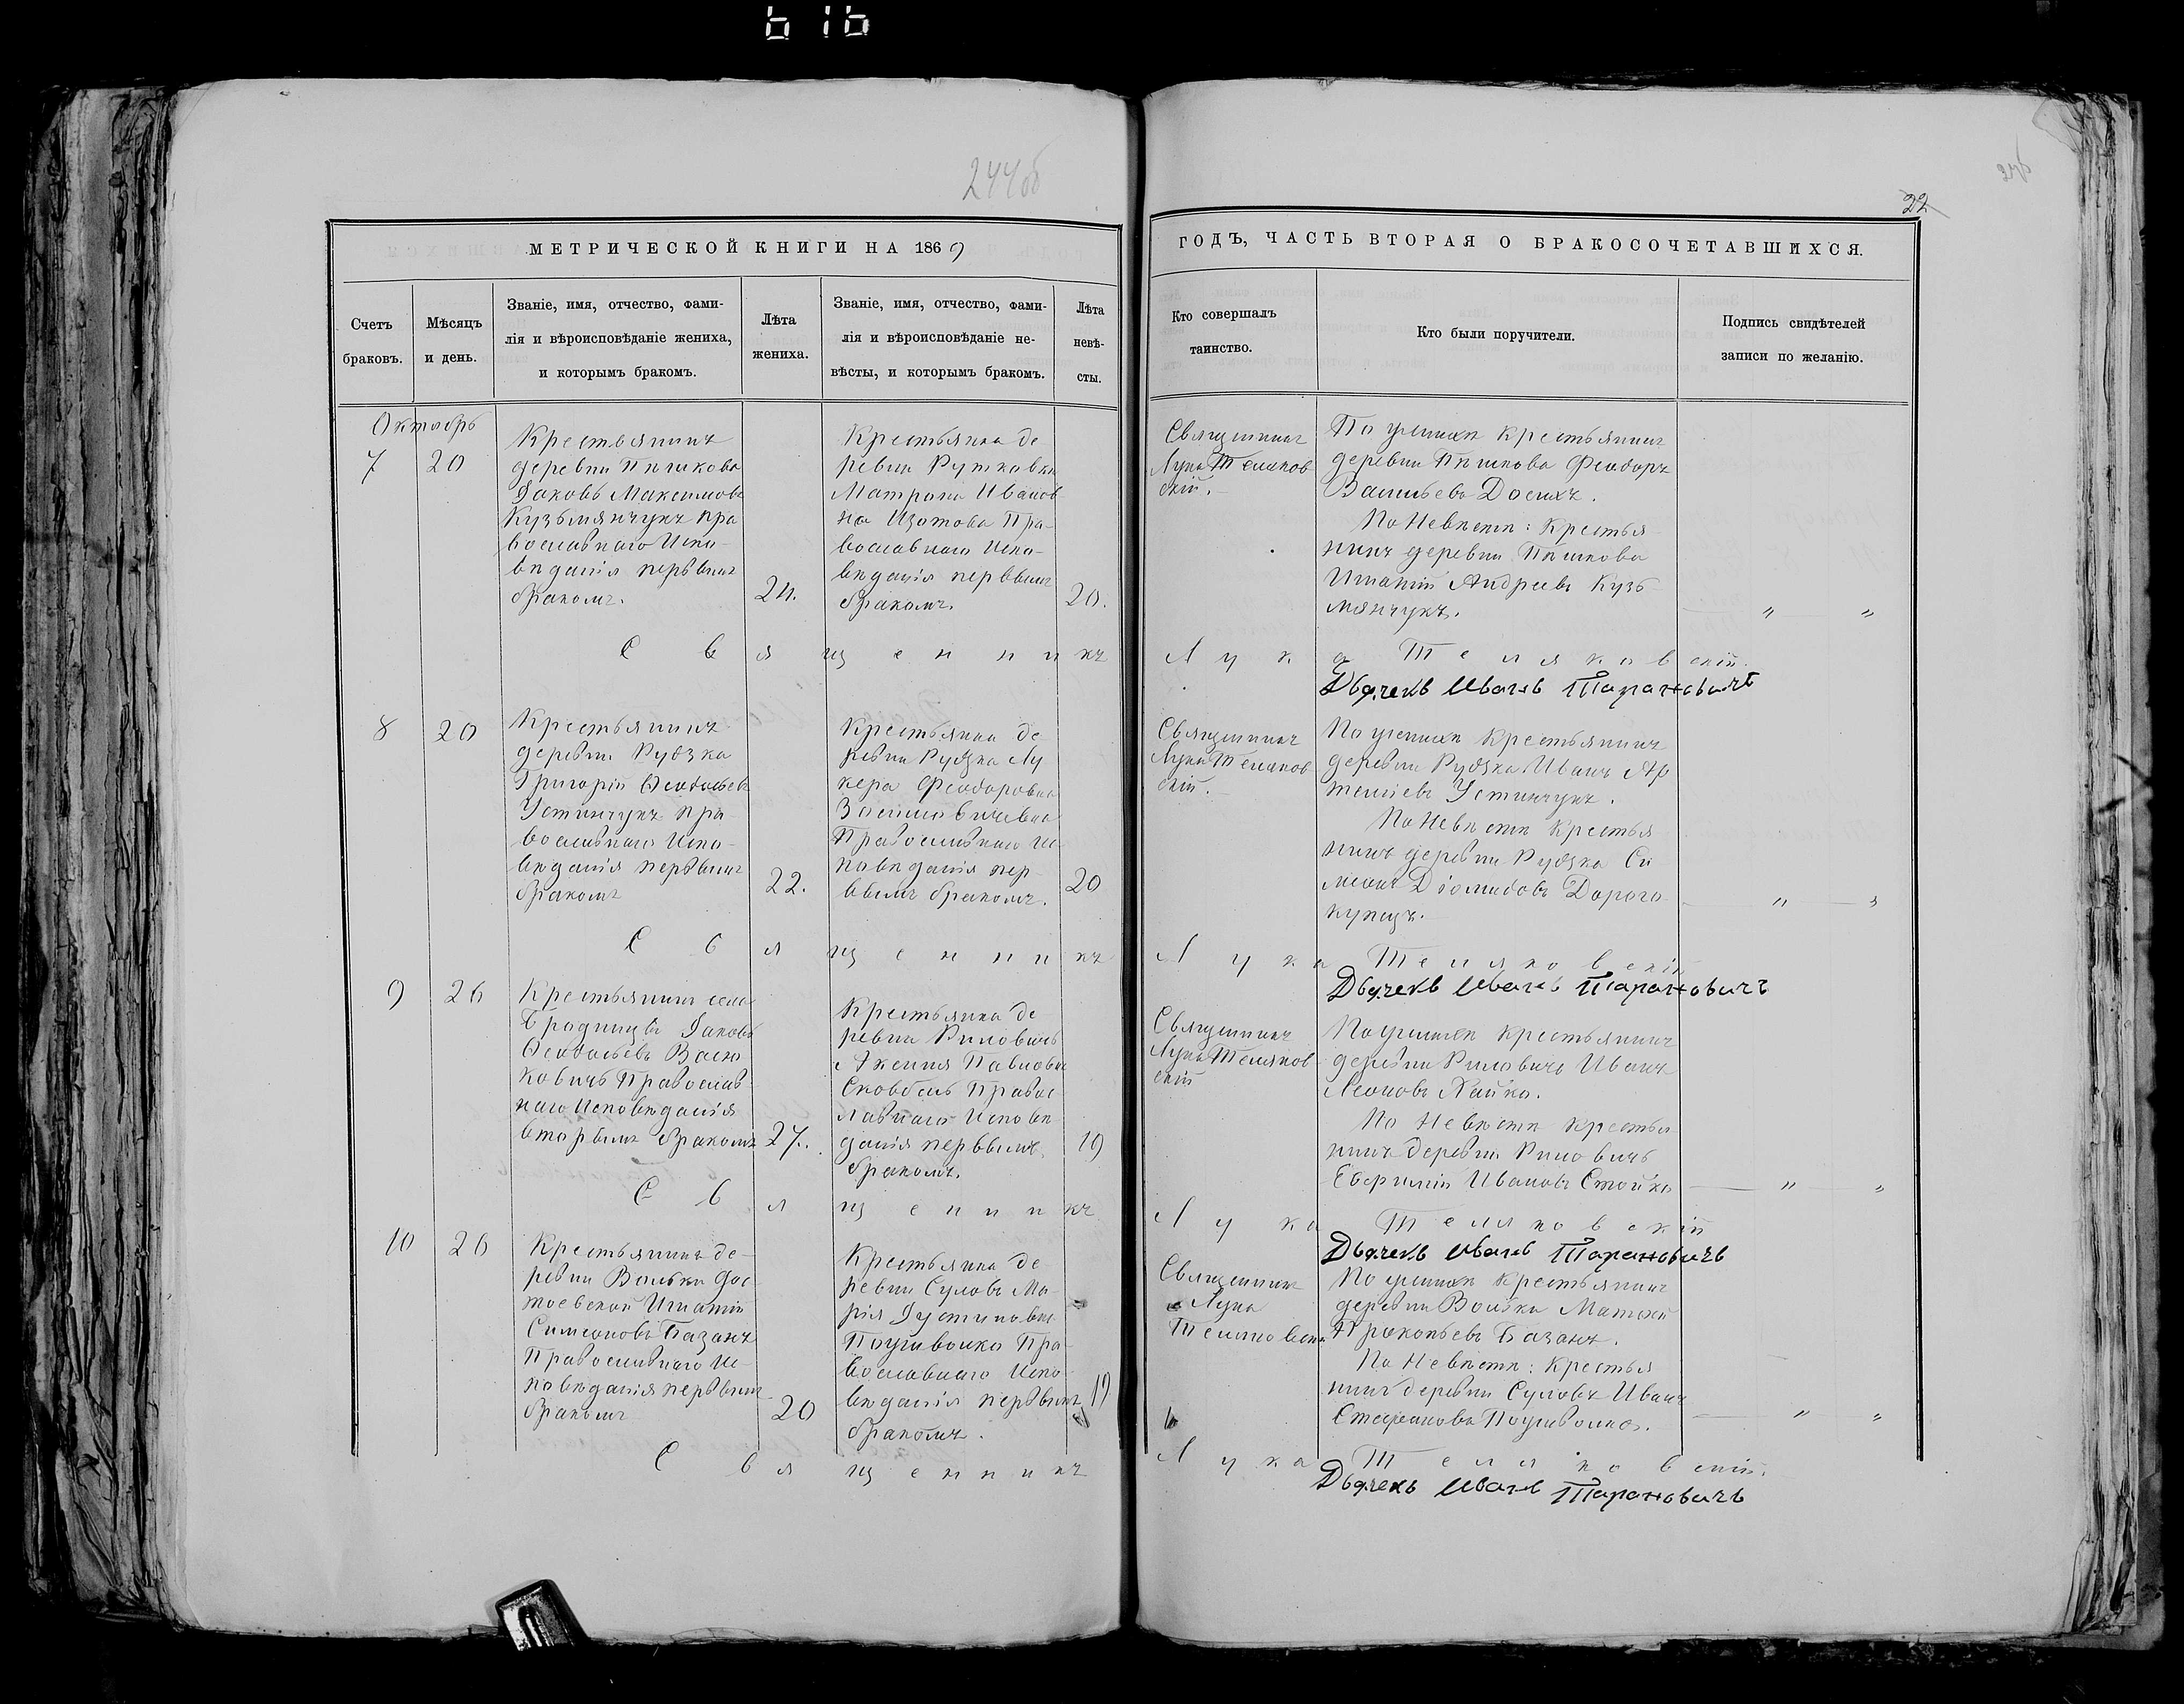 616
244об
22
МЕТРИЧЕСКОЙ КНИГИ НА 1869
ГОДЪ, ЧАСТЬ ВТОРАЯ О БРАКОСОЧЕТАВШИХСЯ.
Счетъ
браковъ.
Мѣсяцъ
и день.
Званіе, имя, отчество, фами-
лія и вѣроисповѣданіе жениха,
и которымъ бракомъ.
Лѣта
жениха.
Званіе, имя, отчество, фами-
лія и вѣроисповѣданіе не-
вѣсты, и которымъ бракомъ.
Лѣта
невѣ-
сты.
Кто совершалъ
таинство.
Кто были поручители.
Подпись свидѣтелей
записи по желанію.
Октябрь
7
20
Крестьянинъ
деревни Пѣшкова
Іаковъ Максимовъ
Кузьмянчукъ пра
вославнаго Испо-
вѣданія первымъ
бракомъ.
24.
Крестьянка де
ревни Рутковки
Матрона Иванов
на Изотова Пра-
вославнаго Испо-
вѣданія первымъ
бракомъ.
20.
Священникъ
Лука Теляков
скій.
По женихѣ крестьянинъ
деревни Пѣшкова Феодоръ
Васильевъ
По Невѣстѣ: Крестья
нинъ деревни Пѣшкова
Игнатій Андреевъ Кузь
мянчукъ.
" "
Священникъ Лука Теляковскій.
Дьячекъ Иванъ Тарановичъ
8
20
Крестьянинъ
деревни Рудзка
Григорій Феодосьевъ
Устинчукъ пра
вославнаго Испо-
вѣданія первымъ
бракомъ
22.
Крестьянка де
ревни Рудзка Лу
кера Феодоровна
Православнаго Ис
повѣданія пер-
вымъ бракомъ.
20
Священникъ
Лука Теляков
скій.
По женихѣ крестьянинъ
деревни Рудзка Иванъ Ар
темьевъ Устинчукъ.
По Невѣстѣ крестья
нинъ деревни Рудзка Си
меонъ Діомидовъ Дорого
купецъ.
" "
Священникъ Лука Теляковскій
Дьячекъ Иванъ Тарановичъ
9
26
Крестьянинъ села
Бродницы Іаковъ
Феодосьевъ Васю
ковичъ Православ
наго Исповѣданія
вторымъ бракомъ
27.
Крестьянка де
ревни Риловичь
Аксенія Павловна
Сковбель Правос
лавнаго Исповѣ
данія первымъ
бракомъ.
19
Священникъ
Лука Теляков
скій
По женихѣ крестьянинъ
деревни Риловичь Иванъ
Леоновъ Хайко.
По Невѣстѣ крестья
нинъ деревни Риловичь
Ивановъ Стойко
" "
Священникъ Лука Теляковскій
Дьячекъ Иванъ Тарановичъ
10
26
Крестьянинъ де-
ревни Вольки Дос
тоевской Игнатій
Симеоновъ Базанъ
Православнаго Ис-
повѣданія первымъ
бракомъ
20
Крестьянка де
ревни Суловъ Ма-
рія Іустиновна
Поживолко Пра-
вославнаго Испо
вѣданія первымъ
бракомъ.
19
Священникъ
Лука
Теляковскій
По женихѣ крестьянинъ
деревни Вольки Матѳей
Прокопьевъ Базанъ.
По Невѣстѣ: Крестья
нинъ деревни Суловъ Иванъ
Стефановъ Поживолко.
" "
Священникъ Лука Теляковскій.
Дьячекъ Иванъ Тарановичъ